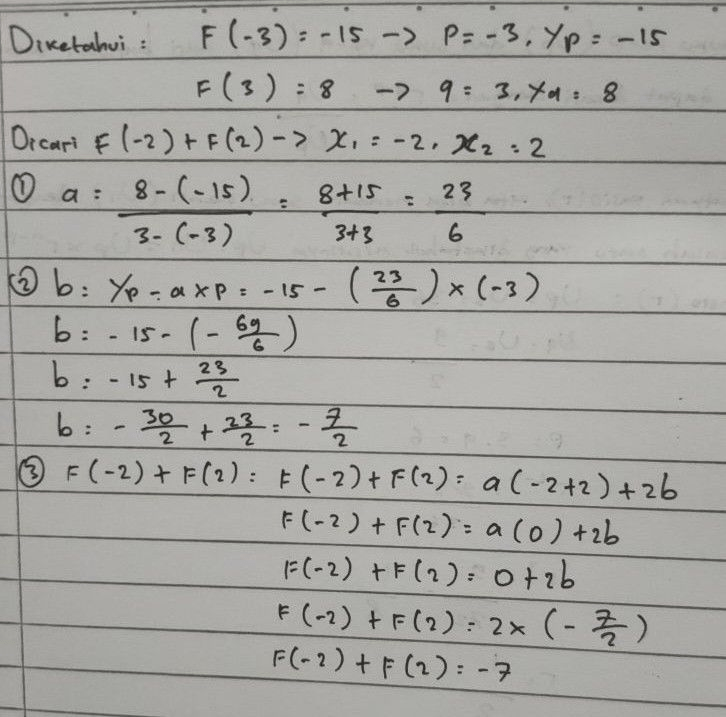 Diketahui : F(-3) = -15 -> P = -3, Yp = -15
F(3) = 8 -> q = 3, Yq = 8
Dicari F(-2) + F(2) -> x₁ = -2, x₂ = 2
① a = 8-(-15) / 3-(-3) = 8+15 / 3+3 = 23/6
② b = Yp - a x p = -15 - (23/6) x (-3)
b = -15 - (- 69/6)
b = -15 + 23/2
b = - 30/2 + 23/2 = - 7/2
③ F(-2) + F(2) = F(-2) + F(2) = a(-2+2) + 2b
F(-2) + F(2) = a(0) + 2b
F(-2) + F(2) = 0 + 2b
F(-2) + F(2) = 2 x (- 7/2)
F(-2) + F(2) = -7